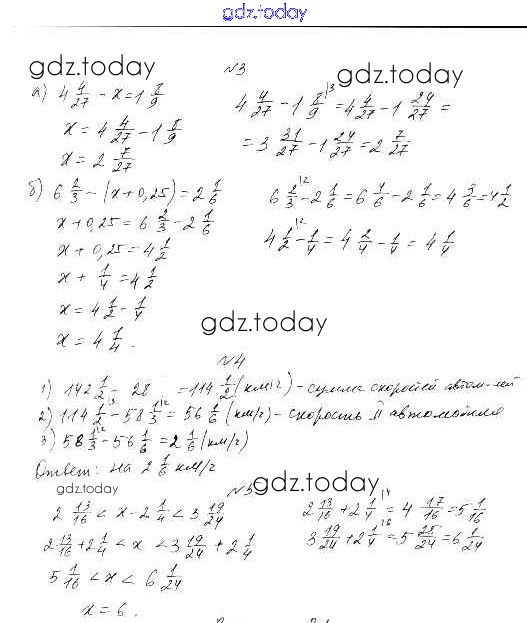 gdz.today
gdz.today
gdz.today
№3
а) 4 4/27 - x = 1 8/9
x = 4 4/27 - 1 8/9
x = 2 7/27
4 4/27 - 1 8/9 |3 = 4 4/27 - 1 24/27 =
= 3 31/27 - 1 24/27 = 2 7/27
б) 6 2/3 - (x + 0,25) = 2 1/6
x + 0,25 = 6 2/3 - 2 1/6
x + 0,25 = 4 1/2
x + 1/4 = 4 1/2
x = 4 1/2 - 1/4
x = 4 1/4.
6 2/3 |2 - 2 1/6 = 6 4/6 - 2 1/6 = 4 3/6 = 4 1/2
4 1/2 |2 - 1/4 = 4 2/4 - 1/4 = 4 1/4
gdz.today
№4
1) 142 1/2 - 28 = 114 1/2 (км/г) - сумма скоростей автом-лей
2) 114 1/2 |3 - 58 1/3 |2 = 56 1/6 (км/г) - скорость II автомобиля
3) 58 1/3 |2 - 56 1/6 = 2 1/6 (км/г)
Ответ: на 2 1/6 км/г
gdz.today
gdz.today
№5
2 13/16 < x - 2 1/4 < 3 19/24
2 13/16 + 2 1/4 < x < 3 19/24 + 2 1/4
5 1/16 < x < 6 1/24
x = 6.
2 13/16 + 2 1/4 |4 = 4 17/16 = 5 1/16
3 19/24 + 2 1/4 |6 = 5 25/24 = 6 1/24